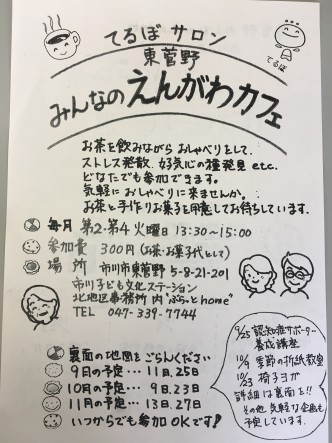 てるぼ サロン
てるぼ
東菅野
みんなのえんがわカフェ
お茶を飲みながら おしゃべりをして、
ストレス発散、好奇心の種発見 etc.
どなたでも参加できます。
気軽に おしゃべりに来ませんか。
お茶と手作りお菓子を用意してお待ちしています。
毎月 第2・第4火曜日 13:30〜15:00
参加費 300円(お茶・お菓子代として)
場所 市川市東菅野 5-8-21-201
市川子ども文化ステーション
北地区事務所内 "ぷらっとhome"
TEL 047-339-7744
裏面の地図をごらんください
9月の予定… 11、25日
10月の予定… 9日、23日
11月の予定… 13日、27日
いつからでも参加OKです!
9/25 認知症サポーター
養成講座
10/9 季節の折紙教室
10/23 椅子ヨガ
詳細は裏面を!!
その他 気軽な企画も
予定しています。